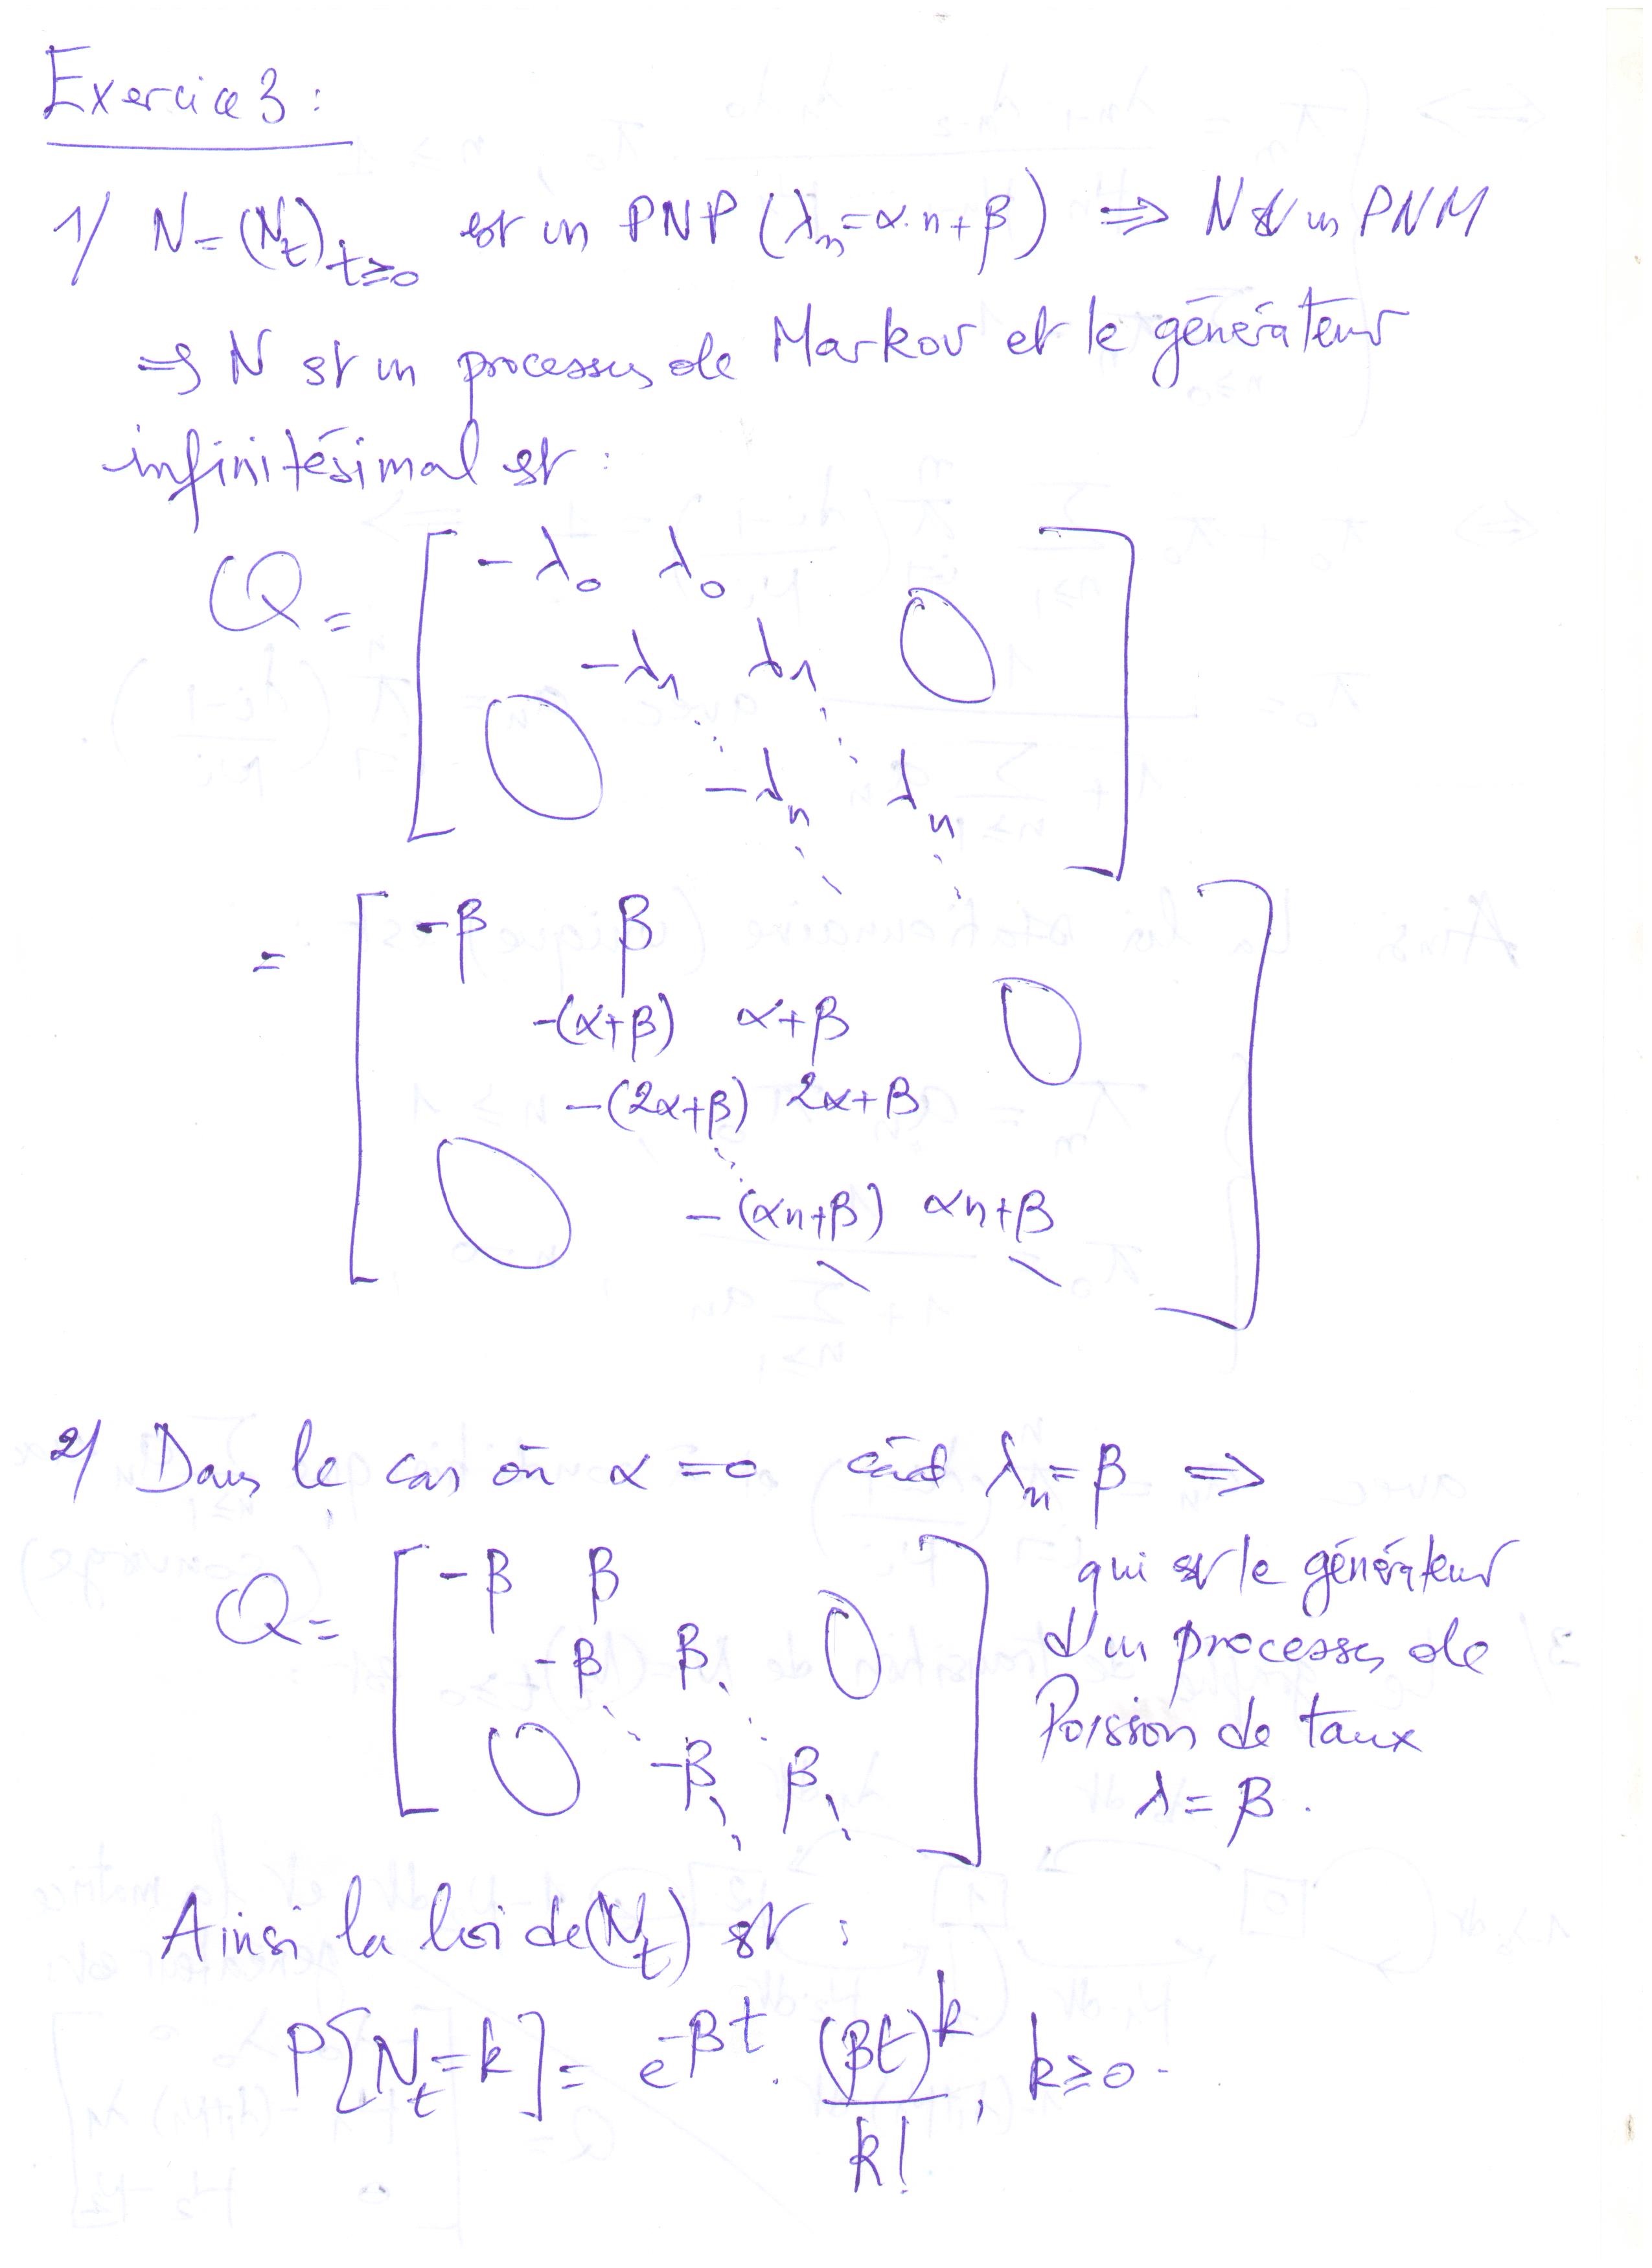 Exercice 3 :
1/ N = (N_t)_{t≥0} est un PNP (λ_n = α·n + β) ⇒ N est un PNM
⇒ N est un processus de Markov et le générateur
infinitésimal est :
Q = [ -λ_0 λ_0
-λ_1 λ_1 0
0 -λ_n λ_n ]
= [ -β β
-(α+β) α+β 0
-(2α+β) 2α+β
0 -(αn+β) αn+β ]
2/ Dans le cas où α = 0 càd λ_n = β ⇒
Q = [ -β β
-β β 0
0 -β β ]
qui est le générateur
d'un processus de
Poisson de taux
λ = β .
Ainsi la loi de (N_t) est :
P[N_t = k] = e^{-βt} · (βt)^k / k! , k ≥ 0 .